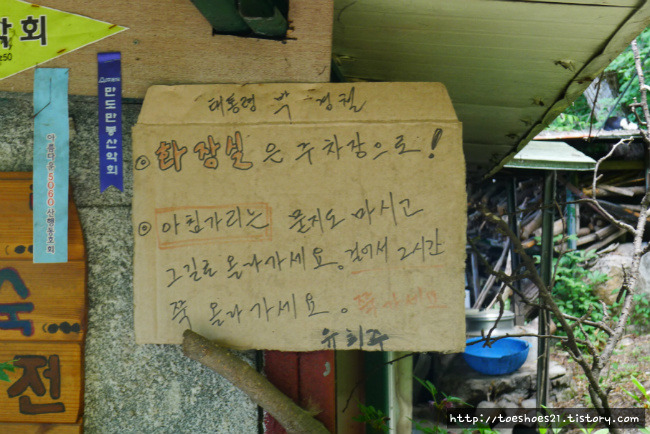 악회
만도만봉산악회
아름다운5060산행동호회
대통령 박 경철
화장실은 주차장으로!
아침가리는 묻지도 마시고
그길로 올라가세요. 걸어서 2시간
쭉 올라가세요.
유희주
숙
전
http://toeshoes21.tistory.com